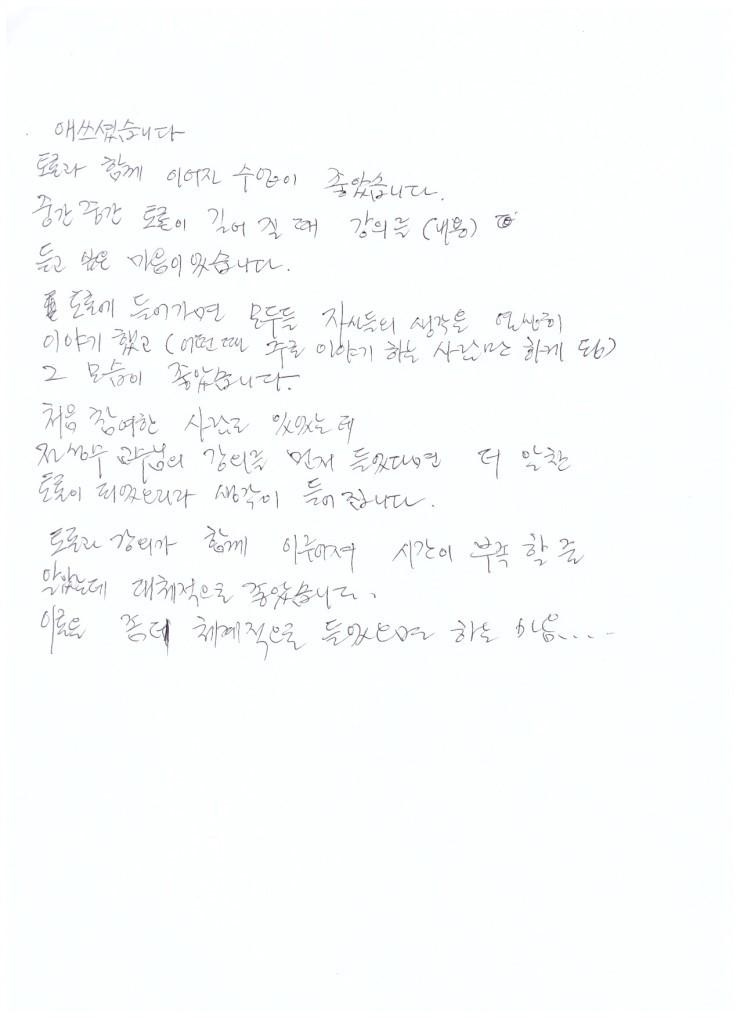 애쓰셨습니다
토론과 함께 이어진 수업이 좋았습니다.
중간중간 토론이 길어 질 때 강의를 (내용) 더
듣고 싶은 마음이 있습니다.
토론에 들어가면 모두들 자신들의 생각을 열심히
이야기 했고 (어떤때 주로 이야기 하는 사람만 하게 됨)
그 모습이 좋았습니다.
처음 참여한 사람도 있었는데
교수님의 강의를 먼저 들었다면 더 알찬
토론이 되었으리라 생각이 들어집니다.
토론과 강의가 함께 이루어져 시간이 부족 할 줄
알았는데 대체적으로 좋았습니다.
이론을 좀더 체계적으로 들었으면 하는 마음.....